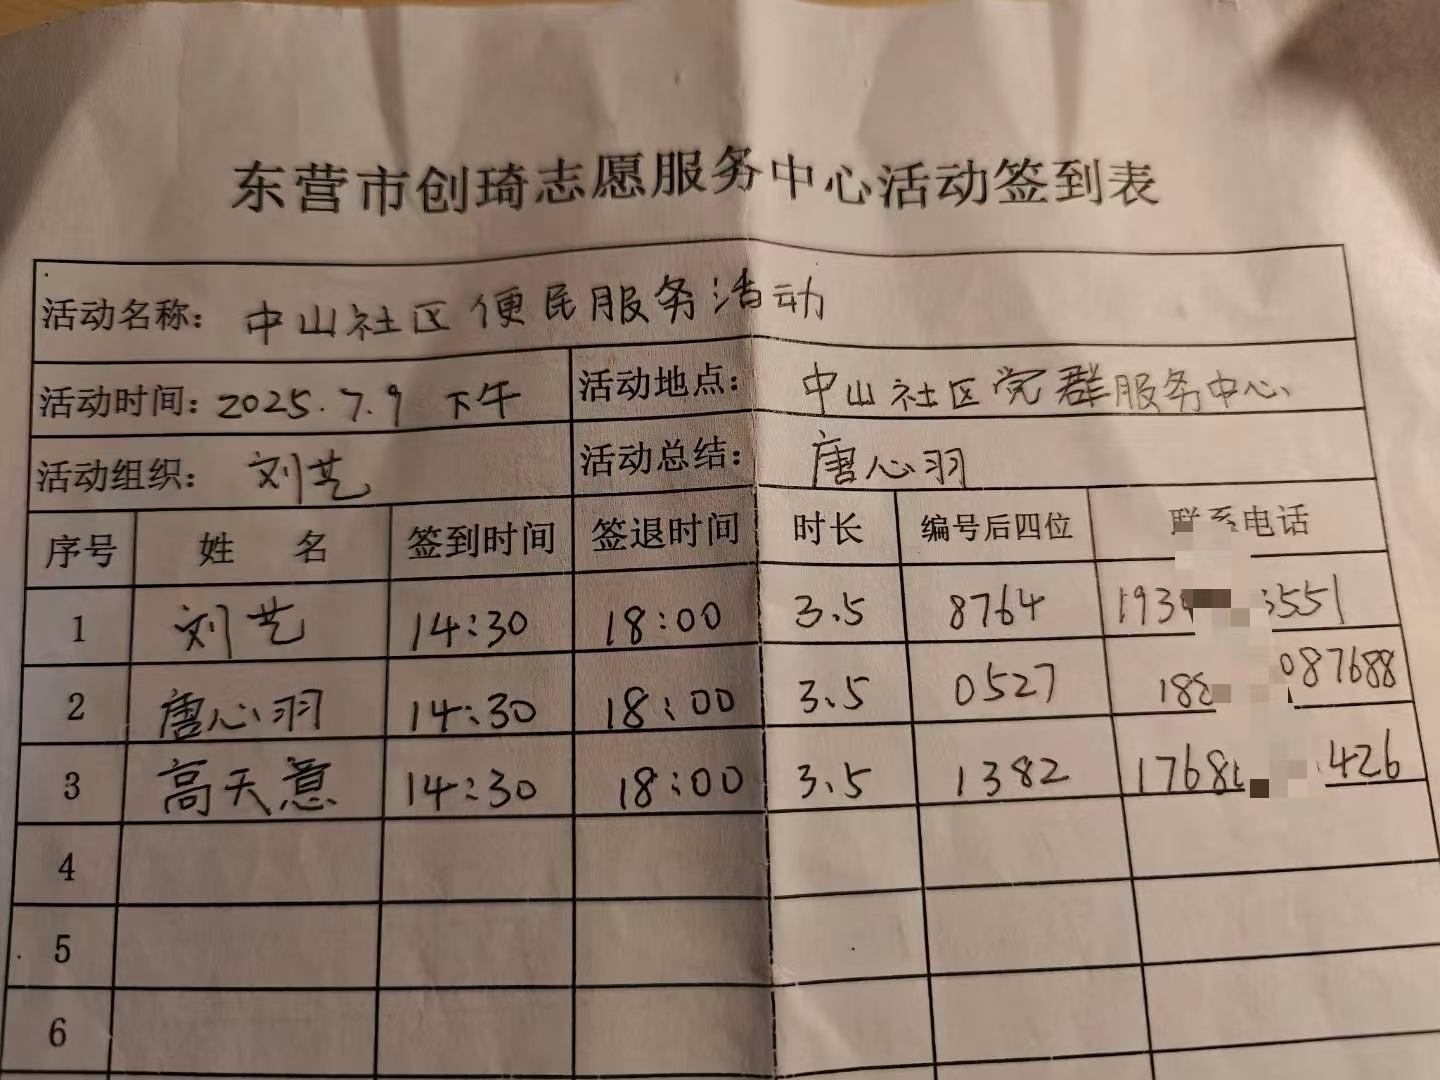 东营市创琦志愿服务中心活动签到表
活动名称: 中山社区便民服务活动
活动时间: 2025.7.9 下午 活动地点: 中山社区党群服务中心
活动组织: 刘艺 活动总结: 唐心羽
序号 姓 名 签到时间 签退时间 时长 编号后四位 联系电话
1 刘艺 14:30 18:00 3.5 8764 193 3551
2 唐心羽 14:30 18:00 3.5 0527 188 087688
3 高天意 14:30 18:00 3.5 1382 1768 426
4
5
6